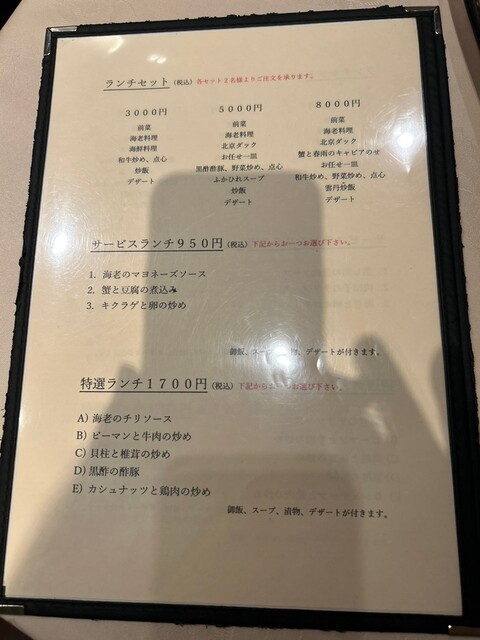 ランチセット（税込）各セット2名様よりご注文を承ります。
3000円
前菜
海老料理
海鮮料理
和牛炒め、点心
炒飯
デザート
5000円
前菜
海老料理
北京ダック
お任せ一皿
黒酢酢豚、野菜炒め、点心
ふかひれスープ
炒飯
デザート
8000円
前菜
海老料理
北京ダック
蟹と春雨のキャビアのせ
お任せ一皿
和牛炒め、野菜炒め、点心
雲丹炒飯
デザート
サービスランチ950円（税込）下記からお一つお選び下さい。
1. 海老のマヨネーズソース
2. 蟹と豆腐の煮込み
3. キクラゲと卵の炒め
御飯、スープ、漬物、デザートが付きます。
特選ランチ1700円（税込）下記からお一つお選び下さい。
A) 海老のチリソース
B) ピーマンと牛肉の炒め
C) 貝柱と椎茸の炒め
D) 黒酢の酢豚
E) カシュナッツと鶏肉の炒め
御飯、スープ、漬物、デザートが付きます。